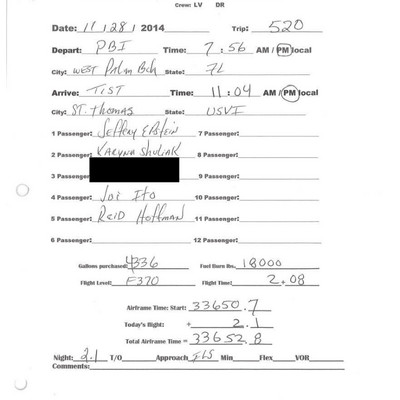 Crew: LV DR
Date: 11/28/2014 Trip: 520
Depart: PBI Time: 7:56 AM / PM local
City: WEST Palm Bch State: FL
Arrive: TIST Time: 11:04 AM / PM local
City: ST. Thomas State: USVI
1 Passenger: Jeffery EPStein 7 Passenger:
2 Passenger: KARYNA SHULIAK 8 Passenger:
3 Passenger 9 Passenger:
4 Passenger: Joi Ito 10 Passenger:
5 Passenger: REID Hoffman 11 Passenger:
6 Passenger: 12 Passenger:
Gallons purchased: 4336 Fuel Burn lbs. 18000
Flight Level: F370 Flight Time: 2+08
Airframe Time: Start: 33650.7
Today's flight: + 2.1
Total Airframe Time = 33652.8
Night: 2.1 T/O Approach ILS Min Flex VOR
Comments: